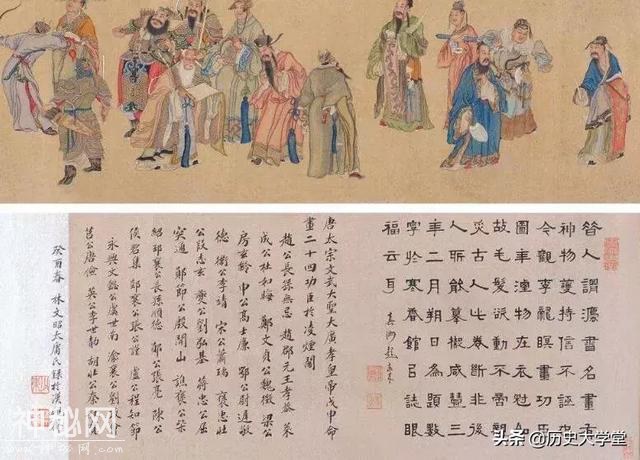 昔人謂灋書名畫有
神物護持信不誣
今觀李龍瞑畫功臣
圖年湮物在衣冠如
故毛髮派動不啻
古人此卷斷非後
人所能摹擬咸豐三
年二月朔日為題數
字於寒香館吕誌眼
福云耳
真州
唐太宗文武大聖大廣孝皇帝戊申命
畫二十四功臣於凌煙閣
趙公長孫無忌 趙郡元王孝恭 萊
成公杜如晦 鄭文貞公魏徵 梁公
房玄齡 申公高士廉 鄂公尉遲敬
德 衛公李靖 宋公蕭瑀 褒忠壯
公段志玄 夔公劉弘基 蔣忠公屈
突通 鄖節公殷開山 譙襄公柴
紹 邳襄公長孫順德 鄖公張亮 陳公
侯君集 郯襄公張公謹 盧公程知節
永興文懿公虞世南 渝襄公劉
莒公唐儉 英公李世勣 胡壯公秦
癸酉春 林文昭大庸氏錄於漢
神秘网
头条 @历史大学堂